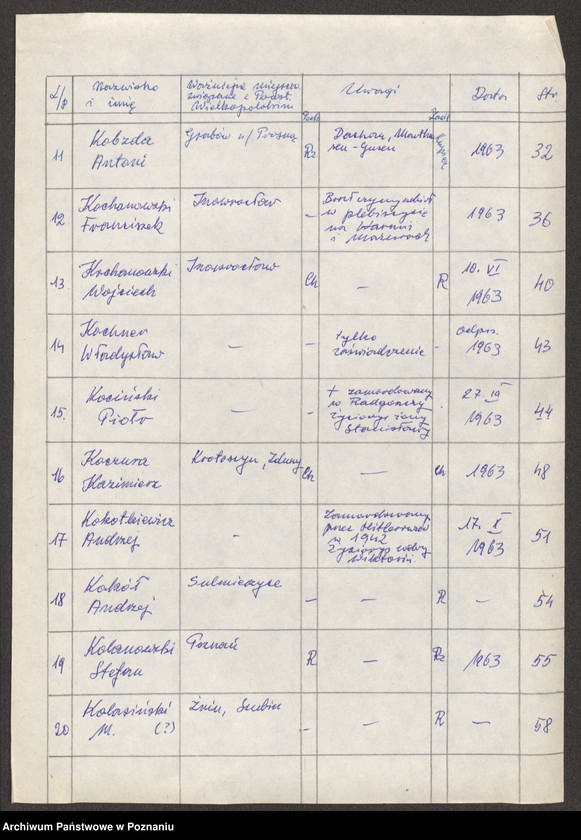 L/p
Nazwisko
i imię
Ważniejsze miejscow.
związane z Powst.
Wielkopolskim
Uwagi
Data
Str
11
Kobzda
Antoni
Grabów n/ Prosną
Rz
Dachau, Mauthau
sen-Gusen
1963
32
12
Kochanowski
Franciszek
Inowrocław
-
Brał czynny udział
w plebiscycie
na Warmii
i Mazurach
1963
36
13
Kochanowski
Wojciech
Inowrocław
Ch
-
R
10. VI
1963
40
14
Kochner
Władysław
-
-
tylko
zaświadczenie
-
odpis.
1963
43
15.
Kociński
Piotr
-
-
+ zamordowany
w Radgoszczy
Życiorys żony
Stanisławy
27
1963
44
16
Koczura
Kazimierz
Krotoszyn, Zduny
Ch
-
Ch
1963
48
17
Kokotkiewicz
Andrzej
-
Zamordowany
przez Hitlerowców
w 1942
Życiorys wdowy
Wiktorii
17. X
1963
51
18
Kokót
Andrzej
Sulmierzyce
-
-
R
-
54
19
Kolanowski
Stefan
Poznań
R
-
Rz
1963
55
20
Kolasiński
M. (?)
Żnin, Szubin
-
-
R
-
58
Archiwum Państwowe w Poznaniu